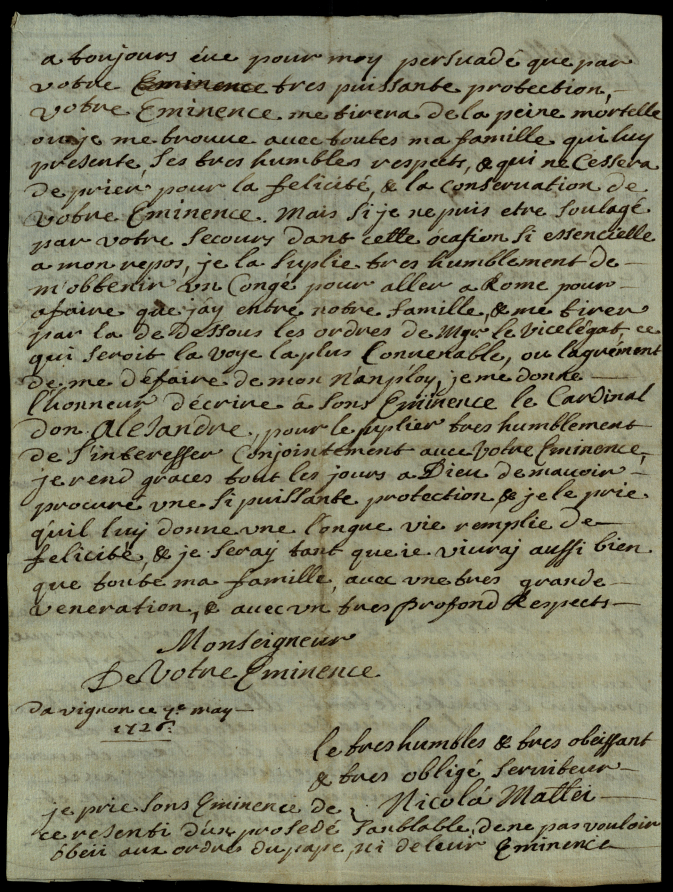 a toujours éüe pour moy persuadé que par
votre Eminence tres puissante protection,
votre Eminence me tirera de la peine mortelle
ou je me trouve avec toutes ma famille qui luy
presente, ses tres humbles respects, & qui ne Cessera
de prier pour la felicité, & la Conservation de
votre Eminence. Mais si je ne puis etre soulagé
par votre secours dant cette ocasion si essencielle
a mon repos, je la suplie tres humblement de
m'obtenir un Congé pour aller a Rome pour
afaire que jay entre notre famille, & me tirer
par la de Dessous les ordres de Mgr le vicelégat, ce
qui seroit la voye la plus Convenable, ou lagrément
de me défaire de mon n'anploy, je me donne
l'honneur décrire à sons Eminence le Cardinal
don Alesandre, pour le suplier tres humblement
de s'interesser Conjointement avec votre Eminence,
je rend graces tout les jours a Dieu de mavoir
procuré une si puissante protection & je le prie
qu'il luy donne une longue vie remplie de
felicité, & je seray tant que ie vivraj aussi bien
que toute ma famille, avec une tres grande
veneration, & avec un tres profond Respects
Monseigneur
De Votre Eminence
Davignon ce 7e may
1726.
le tres humbles & tres obeissant
& tres obligé serviteur
Nicolá Mattei
je prie sons Eminence de
ce resenti d'un prosedé sanblable, de ne pas vouloir
obeii aux ordres du pape, ni de leur Eminence